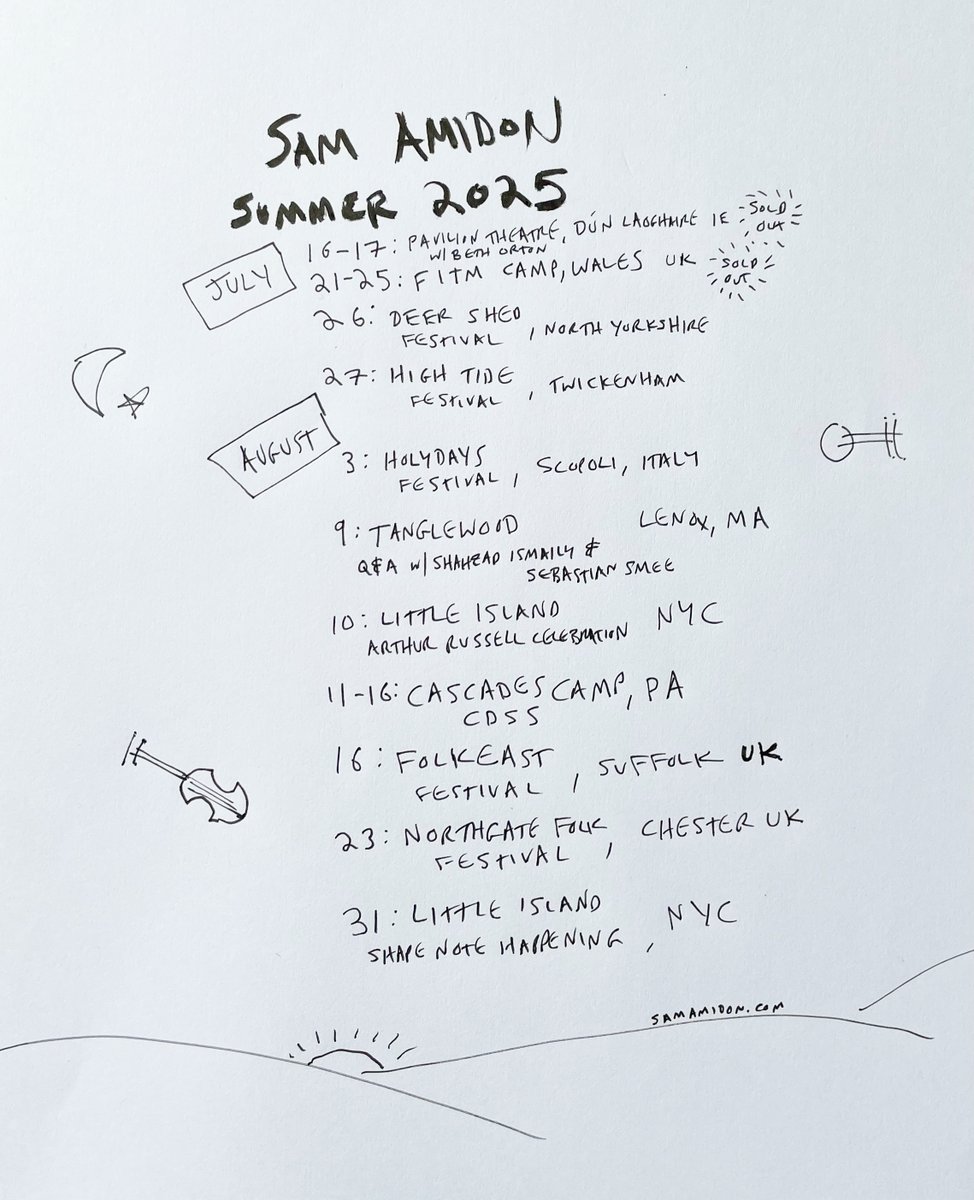 SAM AMIDON
SUMMER 2025
JULY
16-17: PAVILION THEATRE, DÚN LAOGHAIRE IE SOLD OUT
W/ BETH ORTON
21-25: FITM CAMP, WALES UK SOLD OUT
26: DEER SHED
FESTIVAL, NORTH YORKSHIRE
27: HIGH TIDE
FESTIVAL, TWICKENHAM
AUGUST
3: HOLYDAYS
FESTIVAL, SCOPOLI, ITALY
9: TANGLEWOOD LENOX, MA
Q&A W/ SHAHZAD ISMAILY &
SEBASTIAN SMEE
10: LITTLE ISLAND NYC
ARTHUR RUSSELL CELEBRATION
11-16: CASCADES CAMP, PA
CDSS
16: FOLKEAST
FESTIVAL, SUFFOLK UK
23: NORTHGATE FOLK
FESTIVAL, CHESTER UK
31: LITTLE ISLAND
SHAPE NOTE HAPPENING, NYC
SAMAMIDON.COM